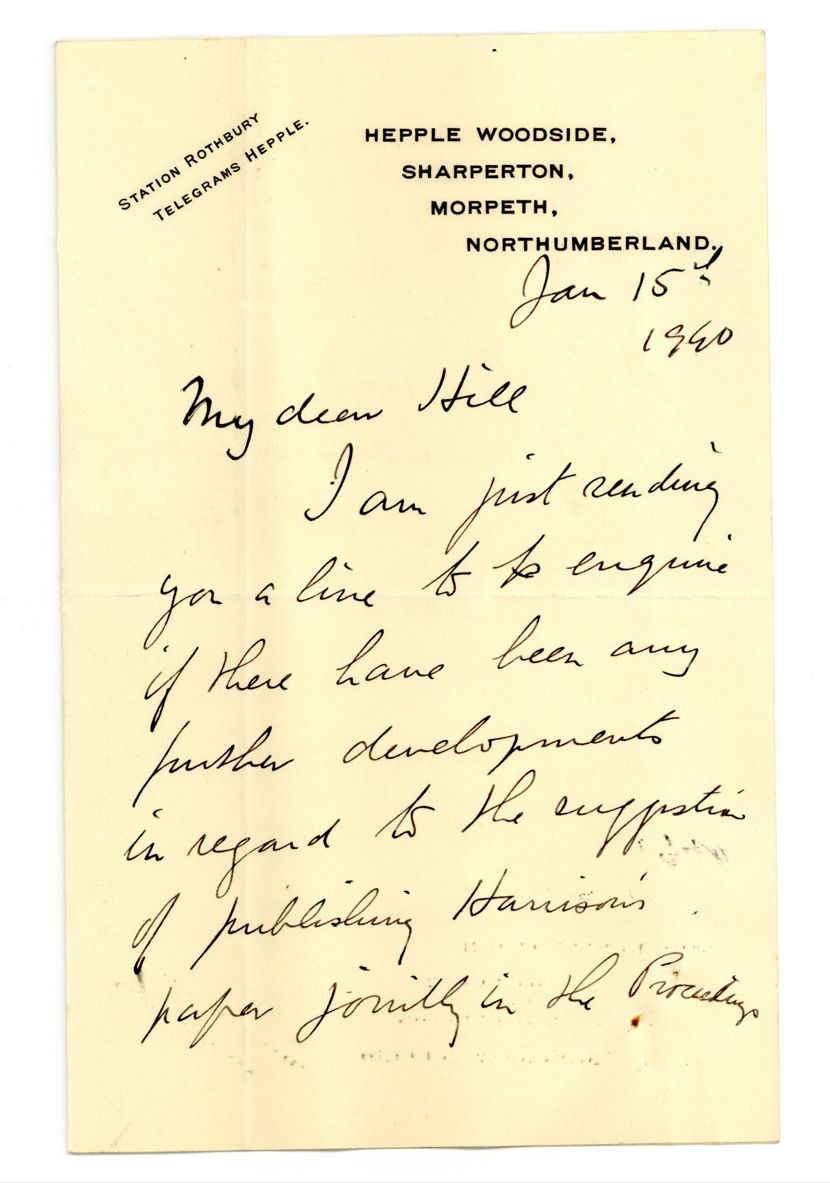 STATION ROTHBURY
TELEGRAMS HEPPLE.
HEPPLE WOODSIDE,
SHARPERTON,
MORPETH,
NORTHUMBERLAND.
Jan 15th
1940
My dear Hill
I am just sending
you a line to to enquire
if there have been any
further developments
in regard to the suggestion
of publishing Harrison's
paper jointly in the Proceedings